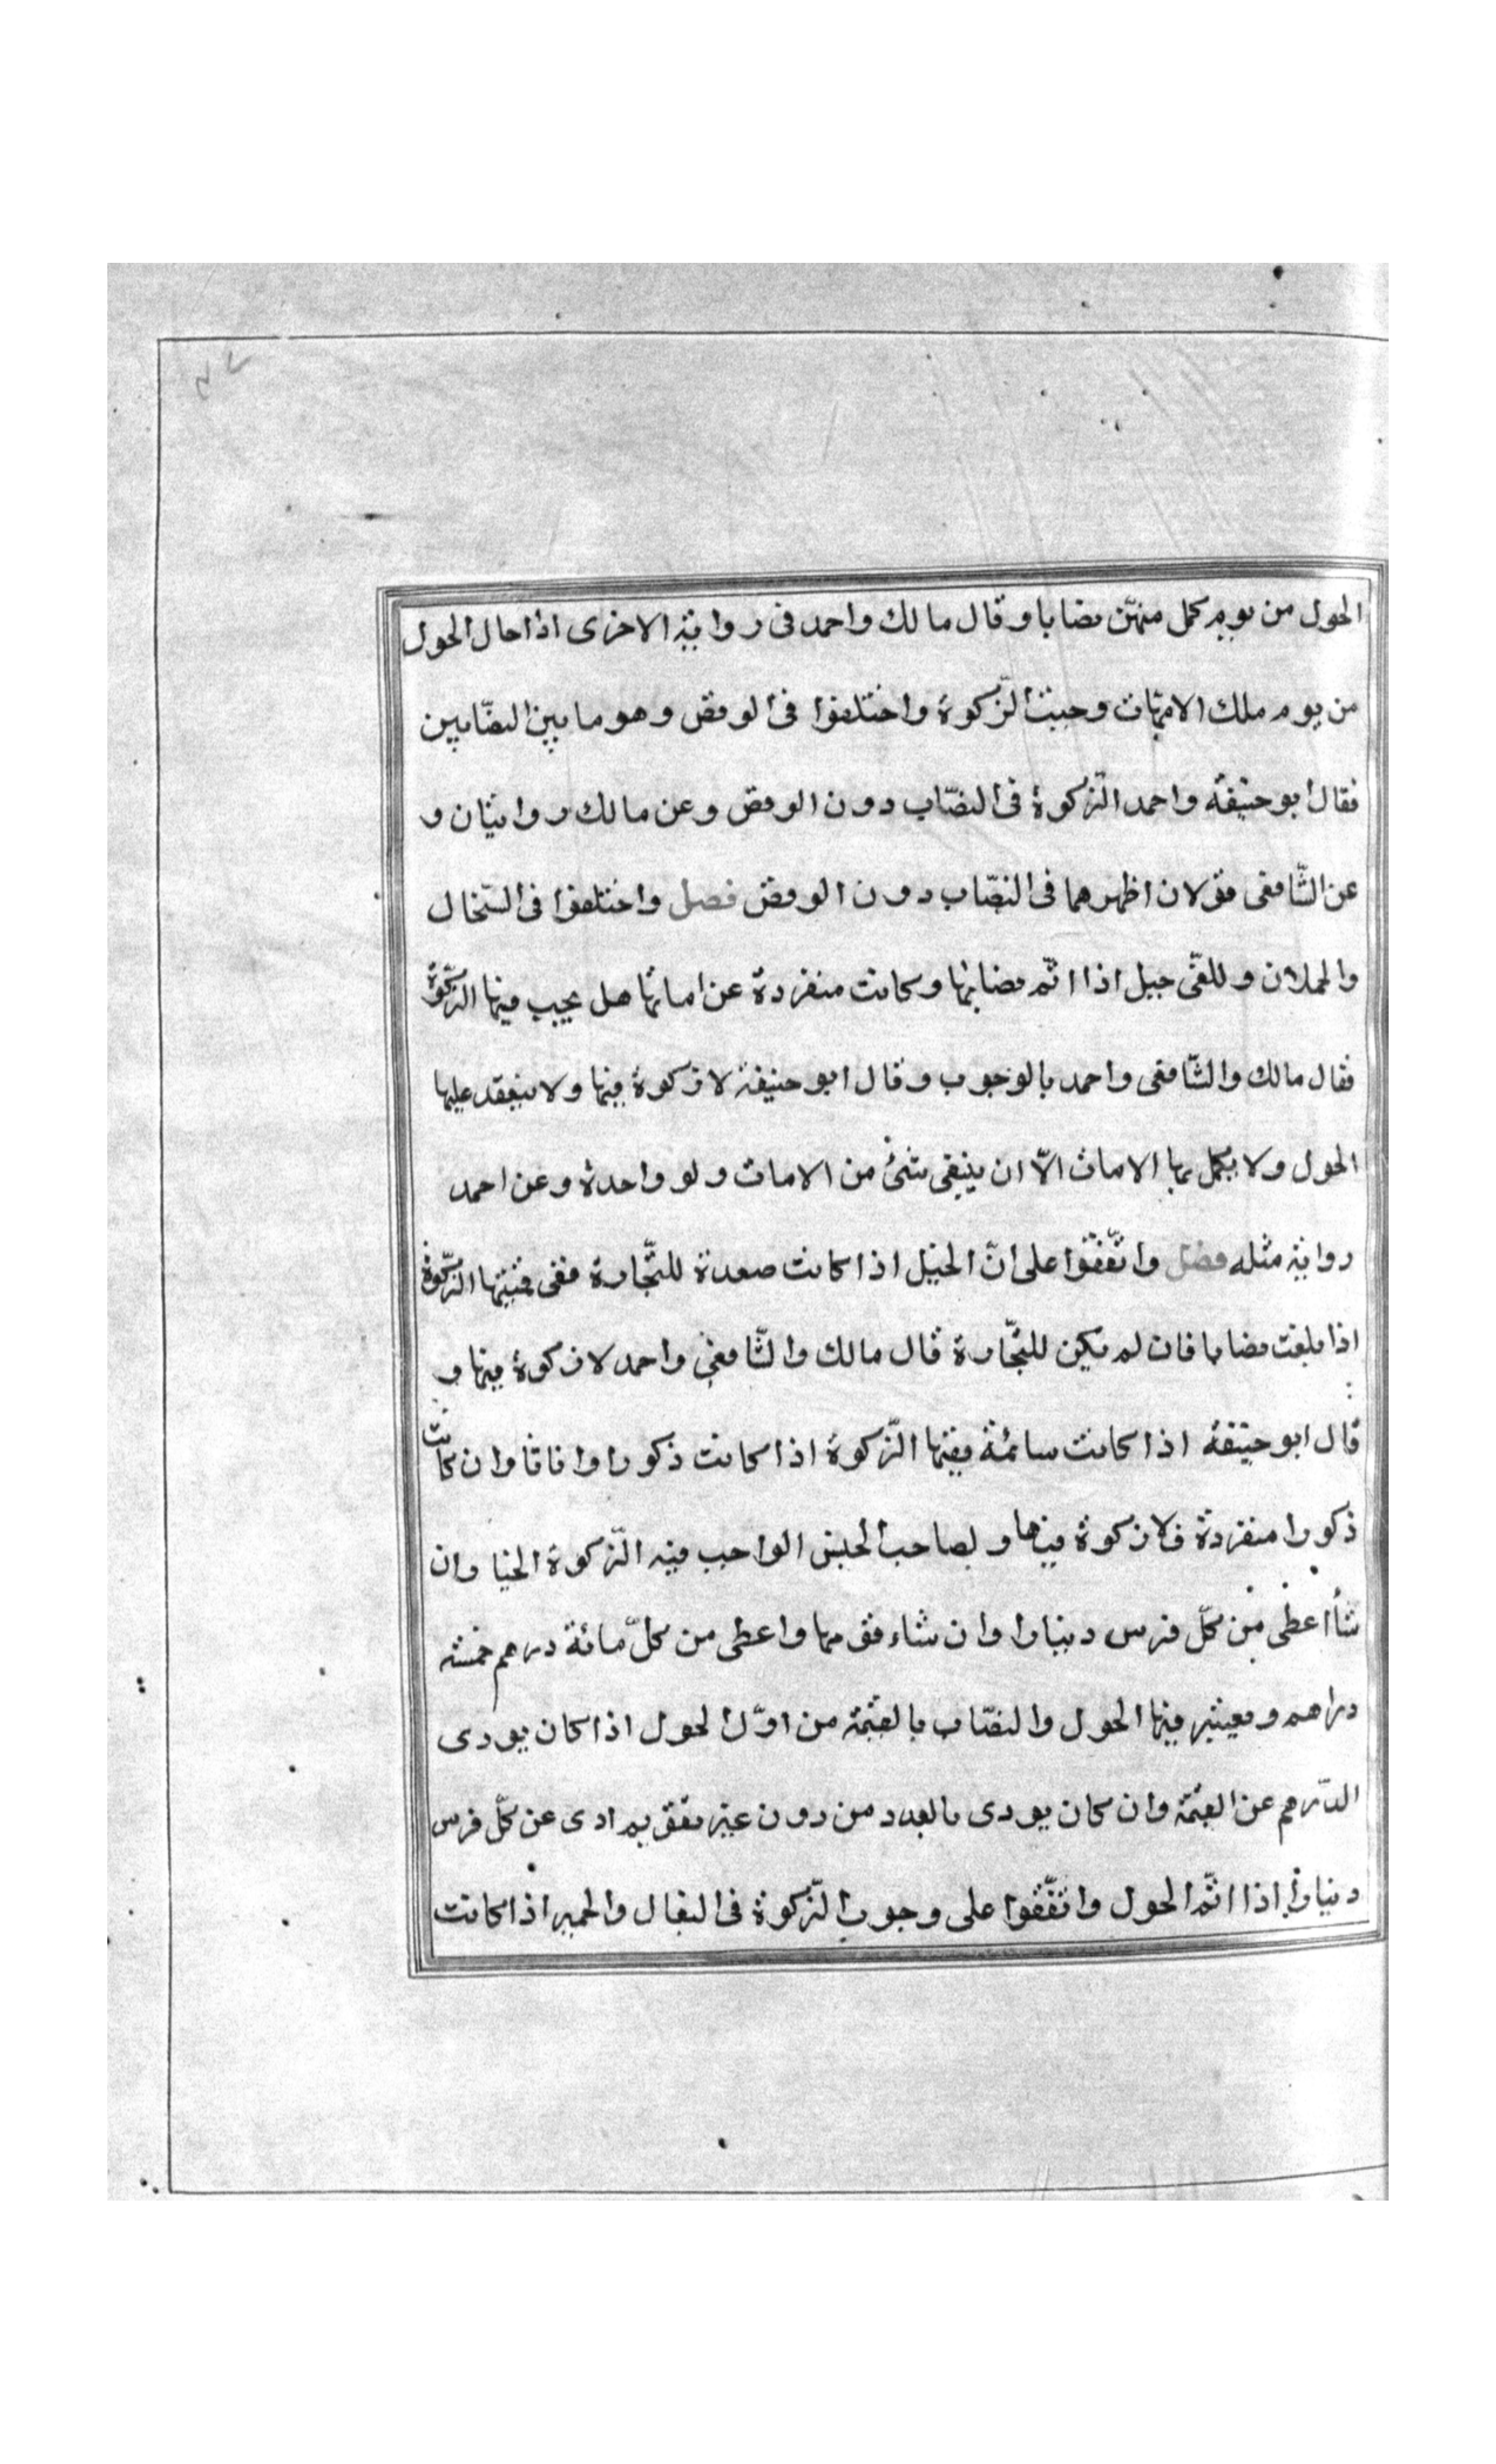 الحول من يوم كمل منهنّ نصابا وقال مالك واحمد فى رواية الاخرى اذا حال الحول
من يوم ملك الامّهات وجبت الزّكوة واختلفوا فى الوقص وهو ما بين النصّابين
فقال ابو حنيفة واحمد الزّكوة فى النصّاب دون الوقص وعن مالك روايتان و
عن الشّافعى قولان اظهرهما فى النصّاب دون الوقص فصل واختلفوا فى السّخال
والحملان و جيل اذا اتّم نصابها وكانت منفردة عن اماتها هل يجب فيها الزّكوة
فقال مالك والشّافعى واحمد بالوجوب وقال ابو حنيفة لا زكوة فيها ولا ينعقد عليها
الحول ولا يكمل بها الامات الّا ان يبقى شئ من الامات ولو واحدة وعن احمد
رواية مثله فصل واتّفقوا على انّ الخيل اذا كانت معدة للتّجارة ففى قيمتها الزّكوة
اذا بلغت نصابا فان لم يكن للتّجارة قال مالك والشّافعى واحمد لا زكوة فيها و
قال ابو حنيفة اذا كانت سائمة ففيها الزّكوة اذا كانت ذكورا واناثا وان كانت
ذكورا منفردة فلا زكوة فيها و لصاحب الجنس الواجب فيه الزّكوة الخيا وان
شأ اعطى من كلّ فرس دينارا وان شاء قومها واعطى من كلّ مائة درهم خمسة
دراهم ويعتبر فيها الحول والنصّاب بالقيمة من اوّل الحول اذا كان يودى
الدّرهم عن القيمة وان كان يودى بالعدد من دون غير تقويم ادى عن كلّ فرس
دينارا اذا اتّم الحول واتّفقوا على وجوب الزّكوة فى البغال والحمير اذا كانت